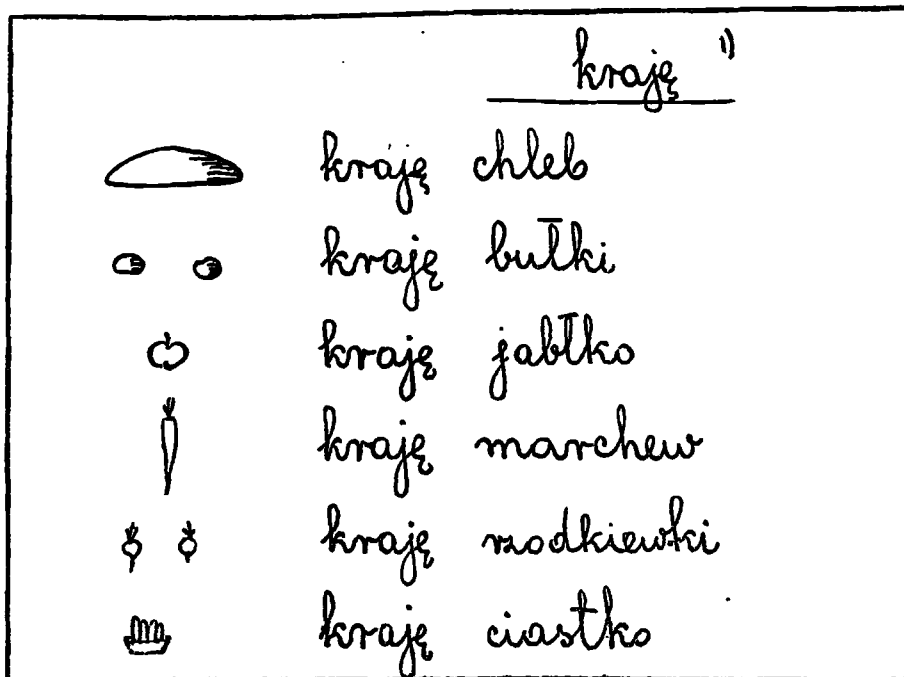 kraję 1)
kraję chleb
kraję bułki
kraję jabłko
kraję marchew
kraję rzodkiewki
kraję ciastko